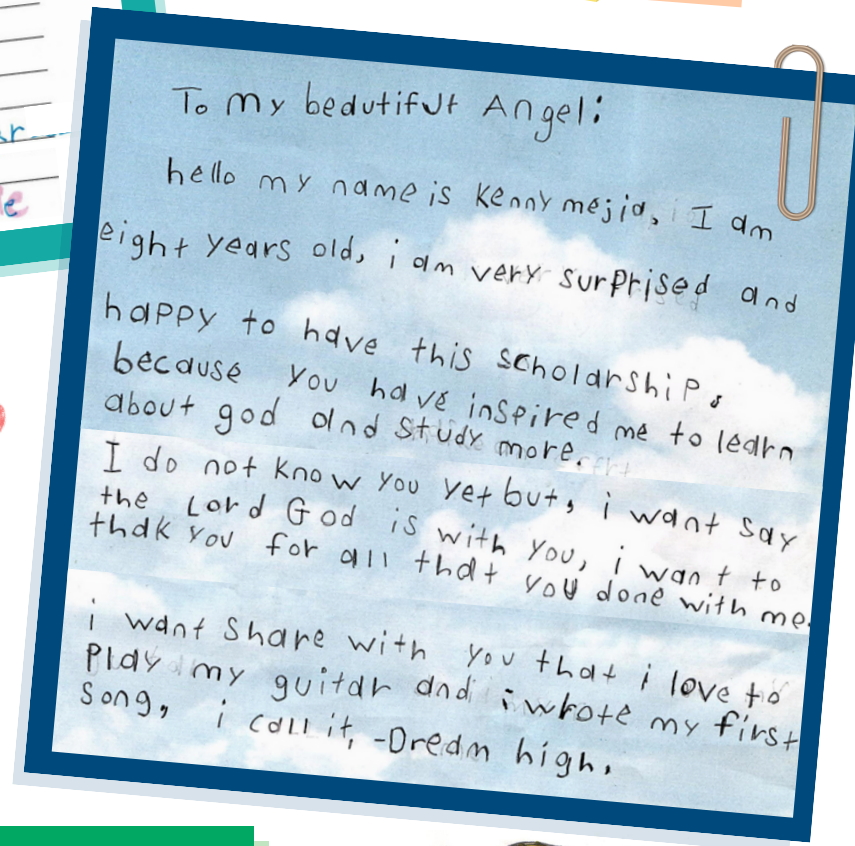 To my beautiful Angel:
hello my name is Kenny mejia, I am
eight years old, i am very surprised and
happy to have this scholarship,
because you have inspired me to learn
about god and study more.
I do not know you yet but, i want say
the Lord God is with you, i want to
thak you for all that you done with me.
i want share with you that i love to
play my guitar and i wrote my first
song, i call it, -Dream high.